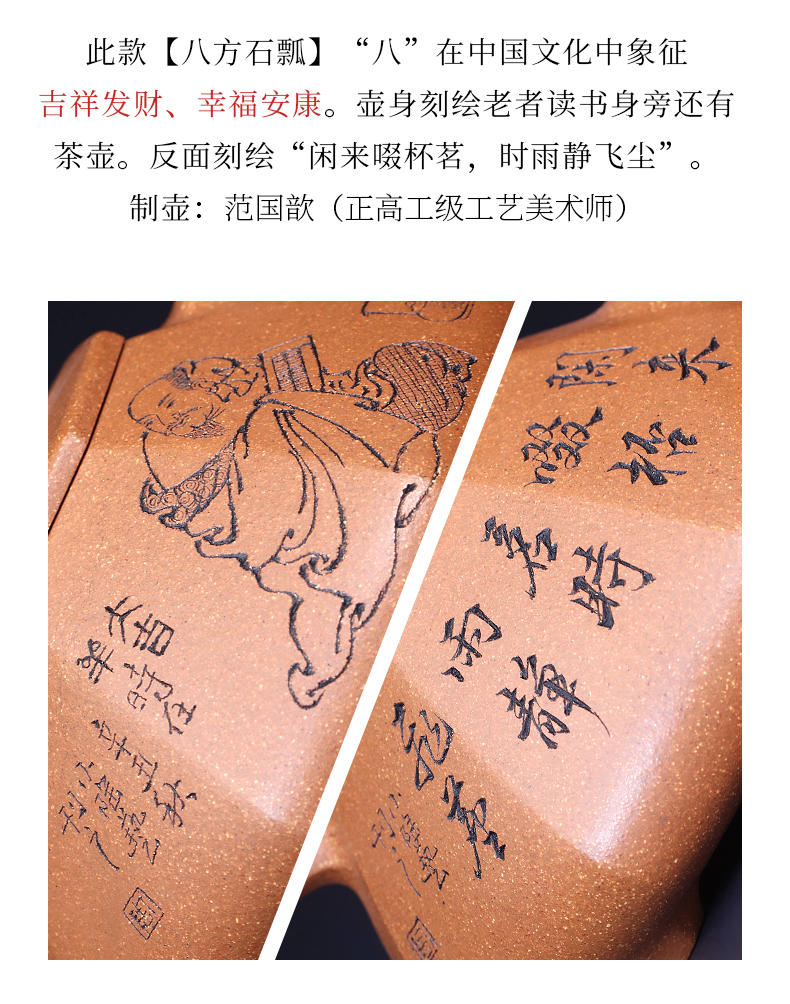 此款【八方石瓢】“八”在中国文化中象征
吉祥发财、幸福安康。壶身刻绘老者读书身旁还有
茶壶。反面刻绘“闲来啜杯茗，时雨静飞尘”。
制壶：范国歆（正高工级工艺美术师）
大吉
时在
辛丑秋
闲来
啜杯
茗时
雨静
飞尘